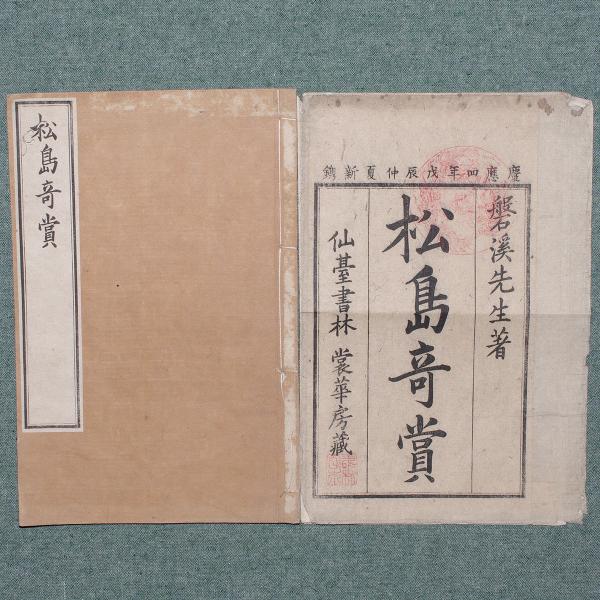 松島竒賞
慶應四年戊辰仲夏新鐫
磐溪先生著
松島竒賞
仙臺書林 裳華房藏